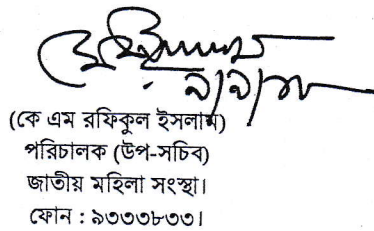 (কে এম রফিকুল ইসলাম)
পরিচালক (উপ-সচিব)
জাতীয় মহিলা সংস্থা।
ফোন : ৯৩৩৩৮৩৩।